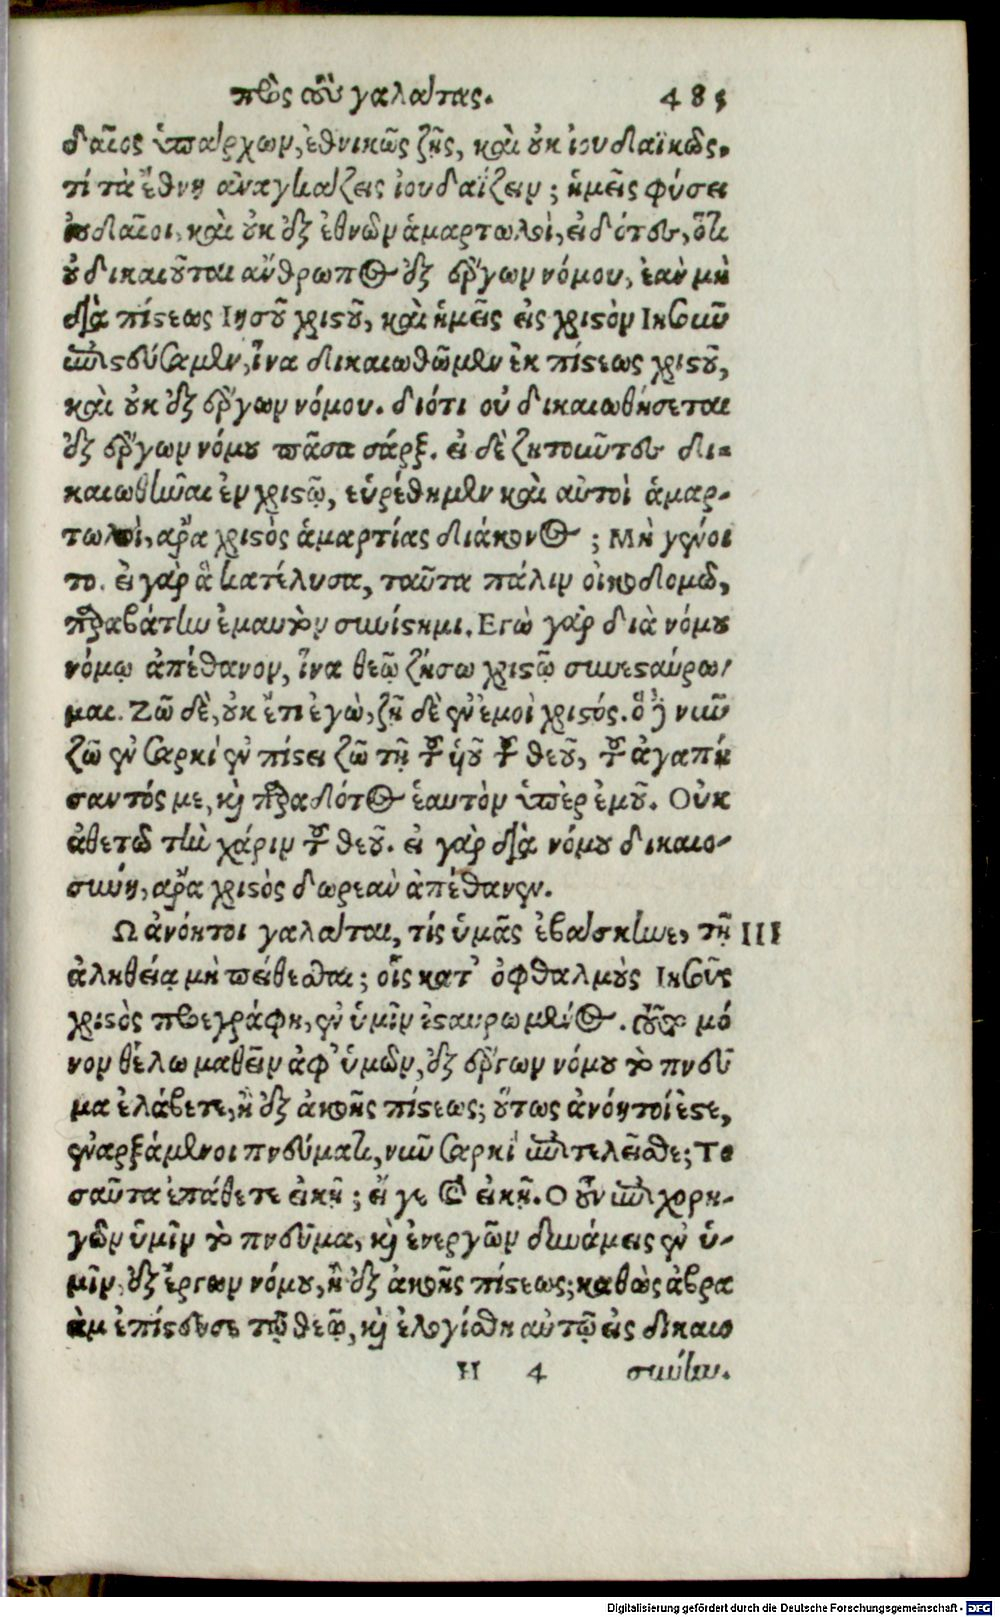 πρὸς τοὺς γαλάτας. 485
δαῖος ὑπάρχων, ἐθνικῶς ζῇς, καὶ οὐκ ἰουδαϊκῶς.
τί τὰ ἔθνη ἀναγκάζεις ἰουδαΐζειν; ἡμεῖς φύσει
ἰουδαῖοι, καὶ οὐκ ἐξ ἐθνῶν ἁμαρτωλοὶ, εἰδότες, ὅτι
οὐ δικαιοῦται ἄνθρωπος ἐξ ἔργων νόμου, ἐὰν μὴ
διὰ πίστεως Ιησοῦ χριστοῦ, καὶ ἡμεῖς εἰς χριστὸν Ιησοῦν
ἐπιστεύσαμεν, ἵνα δικαιωθῶμεν ἐκ πίστεως χριστοῦ,
καὶ οὐκ ἐξ ἔργων νόμου. διότι οὐ δικαιωθήσεται
ἐξ ἔργων νόμου πᾶσα σάρξ. εἰ δὲ ζητοῦντες δι-
καιωθῆναι ἐν χριστῷ, εὑρέθημεν καὶ αὐτοὶ ἁμαρ-
τωλοὶ, ἆρα χριστὸς ἁμαρτίας διάκονος; Μὴ γένοι
το. εἰ γὰρ ἃ κατέλυσα, ταῦτα πάλιν οἰκοδομῶ,
παραβάτην ἐμαυτὸν συνίστημι. Εγὼ γὰρ διὰ νόμου
νόμῳ ἀπέθανον, ἵνα θεῷ ζήσω χριστῷ συνεσταύρω/
μαι. Ζῶ δὲ, οὐκ ἔτι ἐγὼ, ζῇ δὲ ἐν ἐμοὶ χριστός. ὃ δὲ νῦν
ζῶ ἐν σαρκί ἐν πίστει ζῶ τῇ τοῦ ὑιοῦ τοῦ θεοῦ, τοῦ ἀγαπή
σαντός με, καὶ παραδότος ἑαυτὸν ὑπὲρ ἐμοῦ. Οὐκ
ἀθετῶ τὴν χάριν τοῦ θεοῦ. εἰ γὰρ διὰ νόμου δικαιο-
σύνη, ἆρα χριστὸς δωρεὰν ἀπέθανεν.
Ω ἀνόητοι γαλάται, τίς ὑμᾶς ἐβάσκηνε, τῇ III
ἀληθείᾳ μὴ πείθεσθαι; οἷς κατ' ὀφθαλμοὺς Ιησοῦς
χριστὸς προεγράφη, ἐν ὑμῖν ἐσταυρωμένος. τοῦτο μό
νον θέλω μαθεῖν ἀφ' ὑμῶν, ἐξ ἔργων νόμου τὸ πνεῦ
μα ἐλάβετε, ἢ ἐξ ἀκοῆς πίστεως; οὕτως ἀνόητοί ἐστε,
ἐναρξάμενοι πνεύματι, νῦν σαρκὶ ἐπιτελεῖσθε; Το
σαῦτα ἐπάθετε εἰκῆ; εἴ γε καὶ εἰκῆ. Ο οὖν ἐπιχορη-
γῶν ὑμῖν τὸ πνεῦμα, καὶ ἐνεργῶν δυνάμεις ἐν ὑ-
μῖν, ἐξ ἔργων νόμου, ἢ ἐξ ἀκοῆς πίστεως; καθὼς ἀβρα
ὰμ ἐπίστευσε τῷ θεῷ, καὶ ἐλογίσθη αὐτῷ εἰς δικαιο
H 4 σύνην.
Digitalisierung gefördert durch die Deutsche Forschungsgemeinschaft - DFG